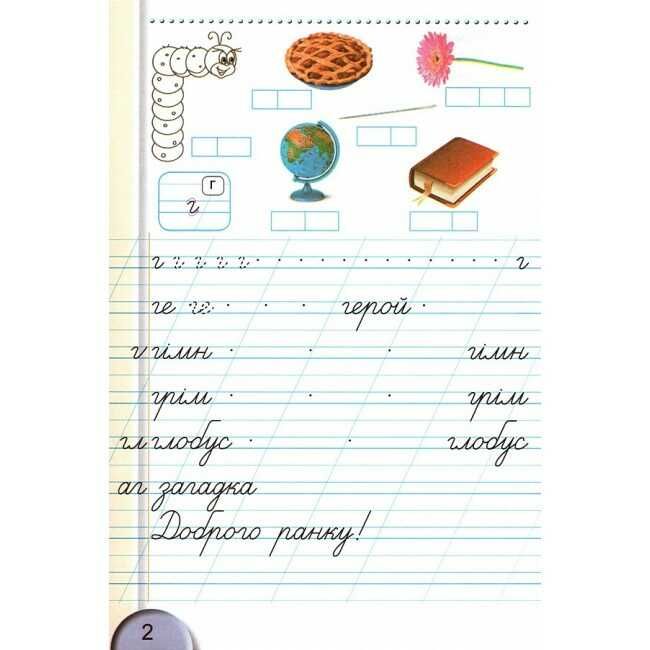 г
г
г г г г г г
ге ге герой
г гімн гімн
грім грім
гл глобус глобус
аг загадка
Доброго ранку!
2